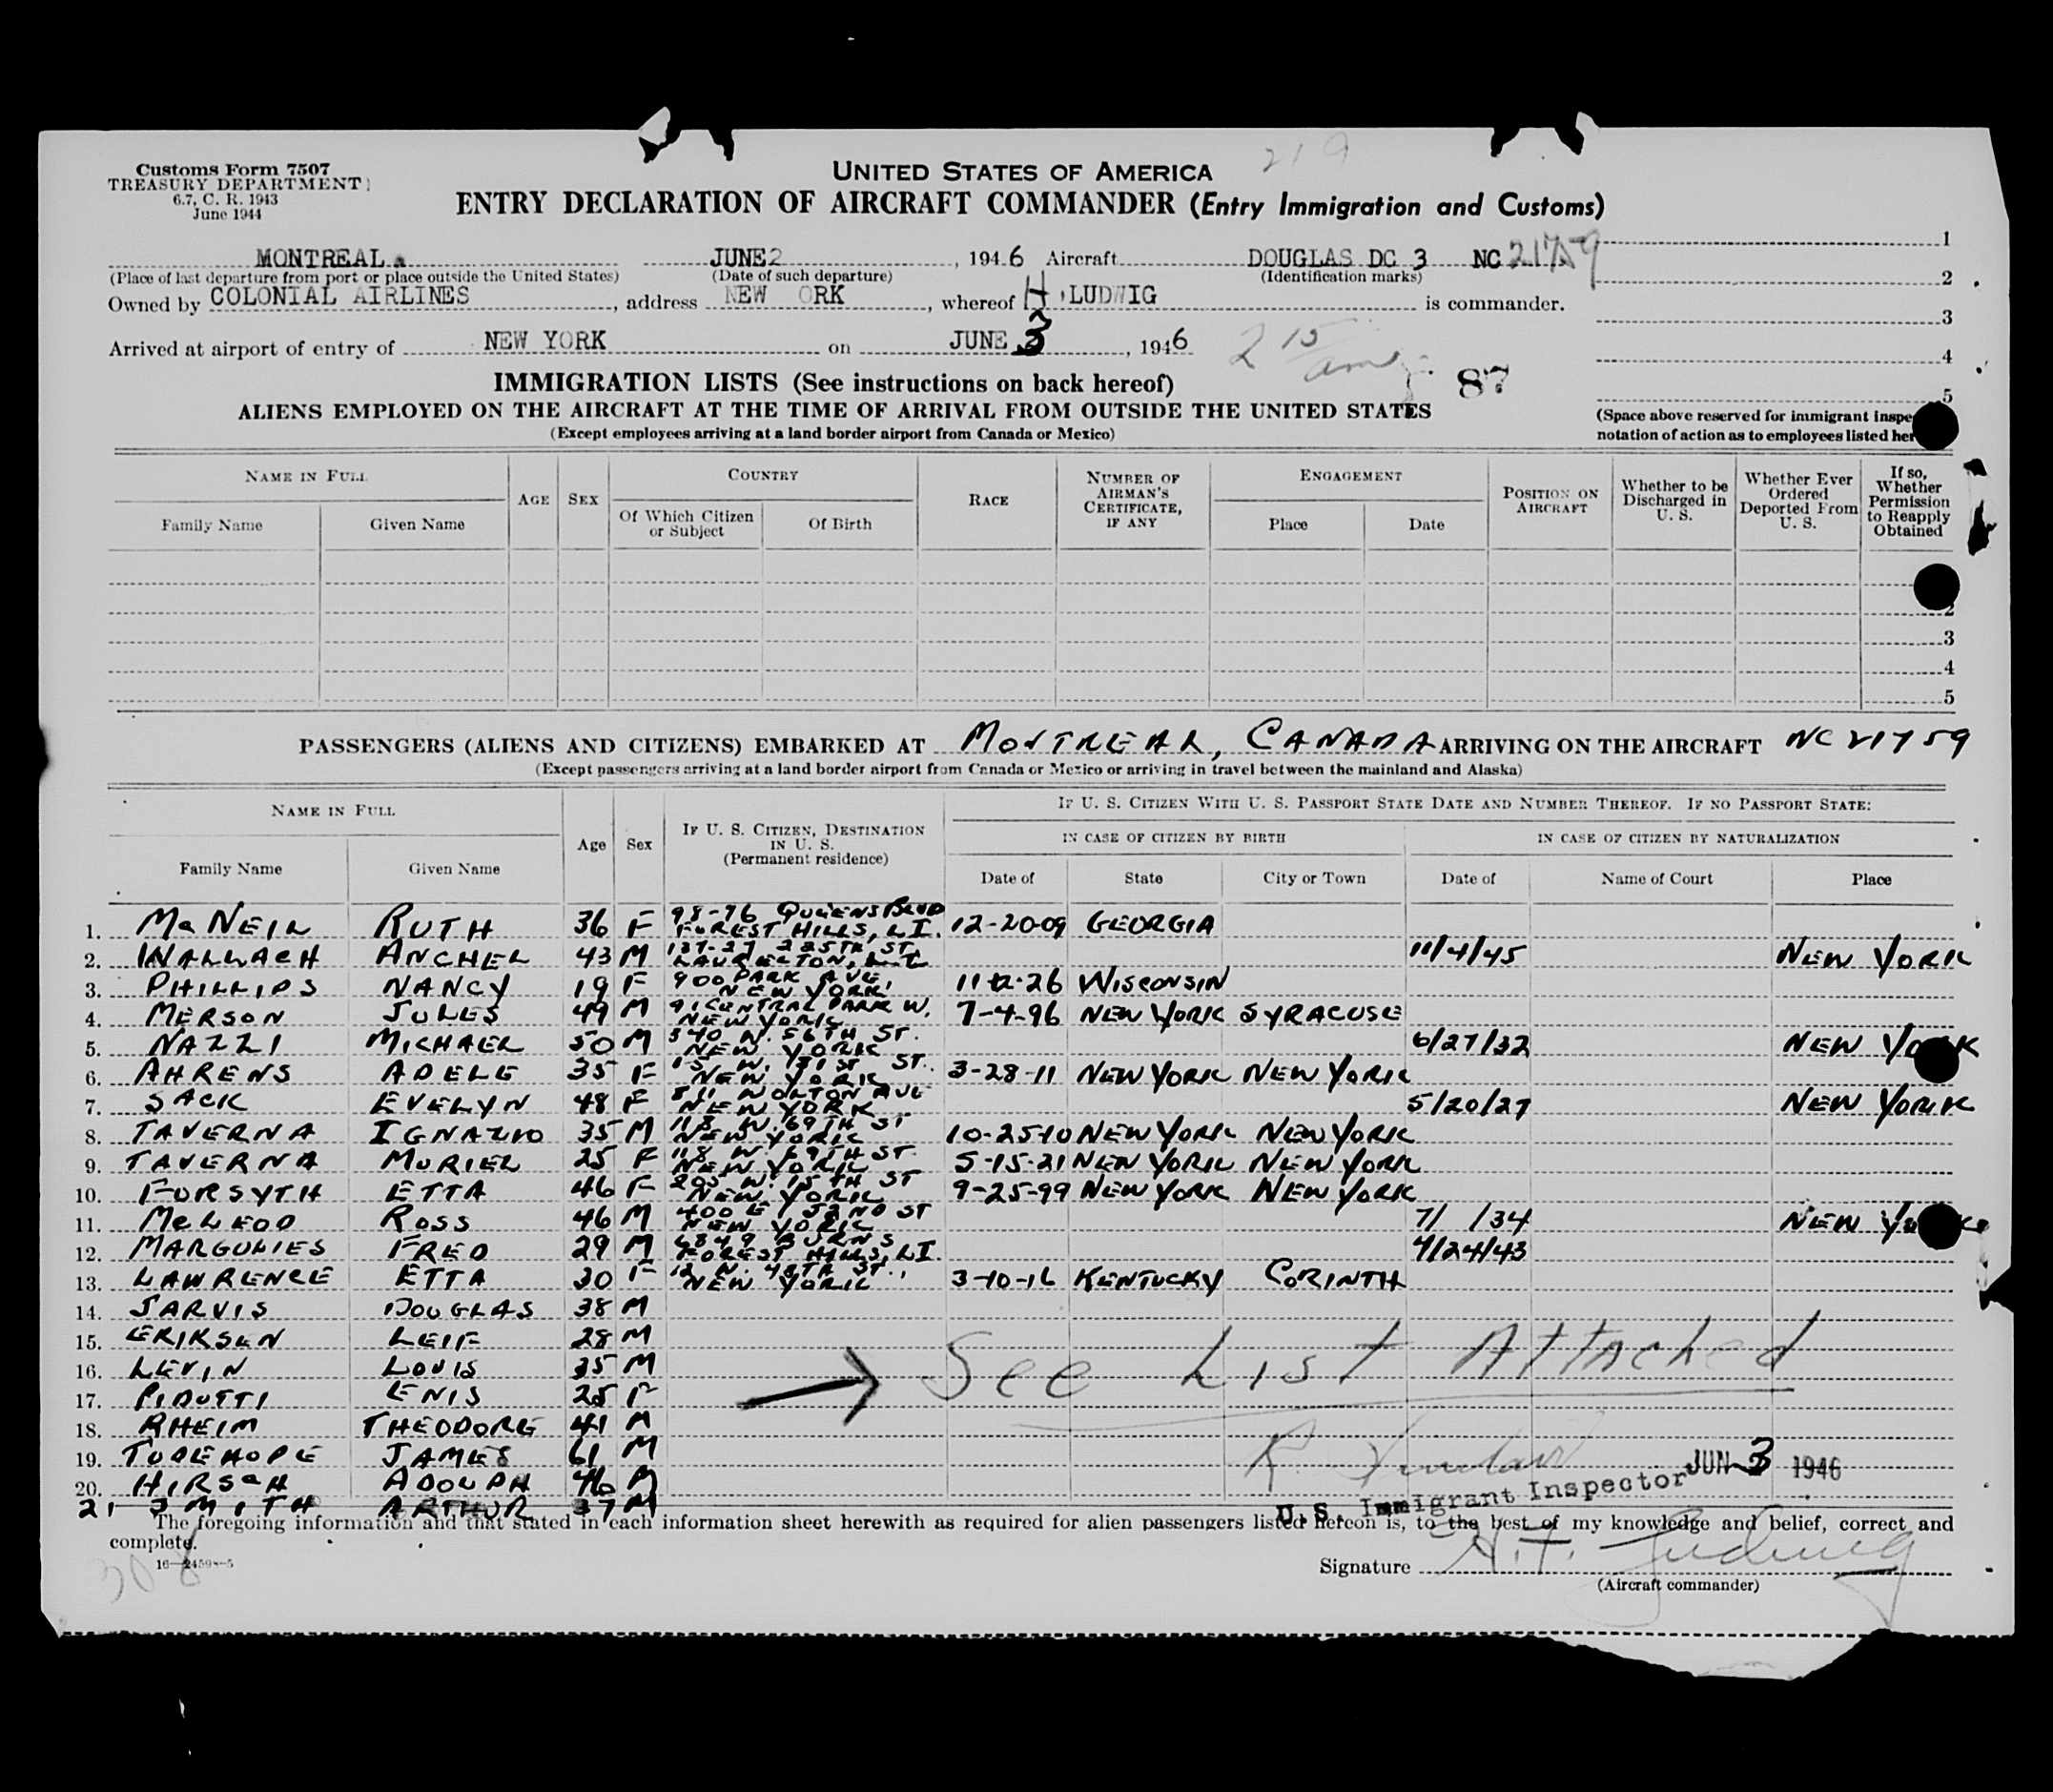 219
Customs Form 7507
TREASURY DEPARTMENT
6.7, C. R. 1943
June 1944
UNITED STATES OF AMERICA
ENTRY DECLARATION OF AIRCRAFT COMMANDER (Entry Immigration and Customs)
MONTREAL JUNE 2, 1946 Aircraft DOUGLAS DC 3 NC 21759
(Place of last departure from port or place outside the United States) (Date of such departure) (Identification marks)
Owned by COLONIAL AIRLINES, address NEW ORK, whereof H. LUDWIG is commander.
Arrived at airport of entry of NEW YORK on JUNE 3, 1946 2 15 am
1
2
3
4
5
IMMIGRATION LISTS (See instructions on back hereof) 87
ALIENS EMPLOYED ON THE AIRCRAFT AT THE TIME OF ARRIVAL FROM OUTSIDE THE UNITED STATES
(Except employees arriving at a land border airport from Canada or Mexico)
(Space above reserved for immigrant inspe
notation of action as to employees listed her
NAME IN FULL
Family Name Given Name
AGE SEX
COUNTRY
Of Which Citizen or Subject Of Birth
RACE
NUMBER OF AIRMAN'S CERTIFICATE, IF ANY
ENGAGEMENT
Place Date
POSITION ON AIRCRAFT
Whether to be Discharged in U. S.
Whether Ever Ordered Deported From U. S.
If so, Whether Permission to Reapply Obtained
2
3
4
5
PASSENGERS (ALIENS AND CITIZENS) EMBARKED AT MONTREAL, CANADA ARRIVING ON THE AIRCRAFT NC 21759
(Except passengers arriving at a land border airport from Canada or Mexico or arriving in travel between the mainland and Alaska)
NAME IN FULL
Family Name Given Name
Age Sex
IF U. S. CITIZEN, DESTINATION IN U. S. (Permanent residence)
IF U. S. CITIZEN WITH U. S. PASSPORT STATE DATE AND NUMBER THEREOF. IF NO PASSPORT STATE:
IN CASE OF CITIZEN BY BIRTH IN CASE OF CITIZEN BY NATURALIZATION
Date of State City or Town Date of Name of Court Place
1. McNEIL RUTH 36 F 98-76 QUEENS BLVD FOREST HILLS, L.I. 12-20-09 GEORGIA
2. WALLACH ANCHEL 43 M 137-27 225TH ST. LAURELTON, L.I. 11/4/45 NEW YORK
3. PHILLIPS NANCY 19 F 900 PARK AVE, NEW YORK 11-2-26 WISCONSIN
4. MERSON JULES 49 M 91 CENTRAL PARK W. NEW YORK 7-4-96 NEW YORK SYRACUSE
5. NAZZI MICHAEL 50 M 340 W. 56TH ST. NEW YORK 6/27/32 NEW YORK
6. AHRENS ADELE 35 F 15 W. 131ST ST. NEW YORK 3-28-11 NEW YORK NEW YORK
7. SACK EVELYN 48 F 811 WALTON AVE NEW YORK 5/20/27 NEW YORK
8. TAVERNA IGNAZIO 35 M 118 W. 69TH ST NEW YORK 10-25-10 NEW YORK NEW YORK
9. TAVERNA MURIEL 25 F 118 W. 69TH ST. NEW YORK 5-15-21 NEW YORK NEW YORK
10. FORSYTH ETTA 46 F 205 W. 15TH ST NEW YORK 9-25-99 NEW YORK NEW YORK
11. McLEOD ROSS 46 M 400 E 52ND ST NEW YORK 7/ /34 NEW YORK
12. MARGULIES FRED 29 M 6849 BURNS FOREST HILLS, L.I. 4/24/43
13. LAWRENCE ETTA 30 F 12 W. 48TH ST., NEW YORK 3-10-16 KENTUCKY CORINTH
14. JARVIS DOUGLAS 38 M
15. ERIKSEN LEIF 28 M
16. LEVIN LOUIS 35 M → See List Attached
17. PIDUTTI ENIS 25 F
18. RHEIM THEODORE 41 M
19. TUDEHOPE JAMES 61 M
20. HIRSCH ADOLPH 46 M
21 SMITH ARTHUR 37 M
JUN 3 1946
U.S. Immigrant Inspector
The foregoing information and that stated in each information sheet herewith as required for alien passengers listed hereon is, to the best of my knowledge and belief, correct and
complete.
308
16—2459—5
Signature H. F. Ludwig
(Aircraft commander)